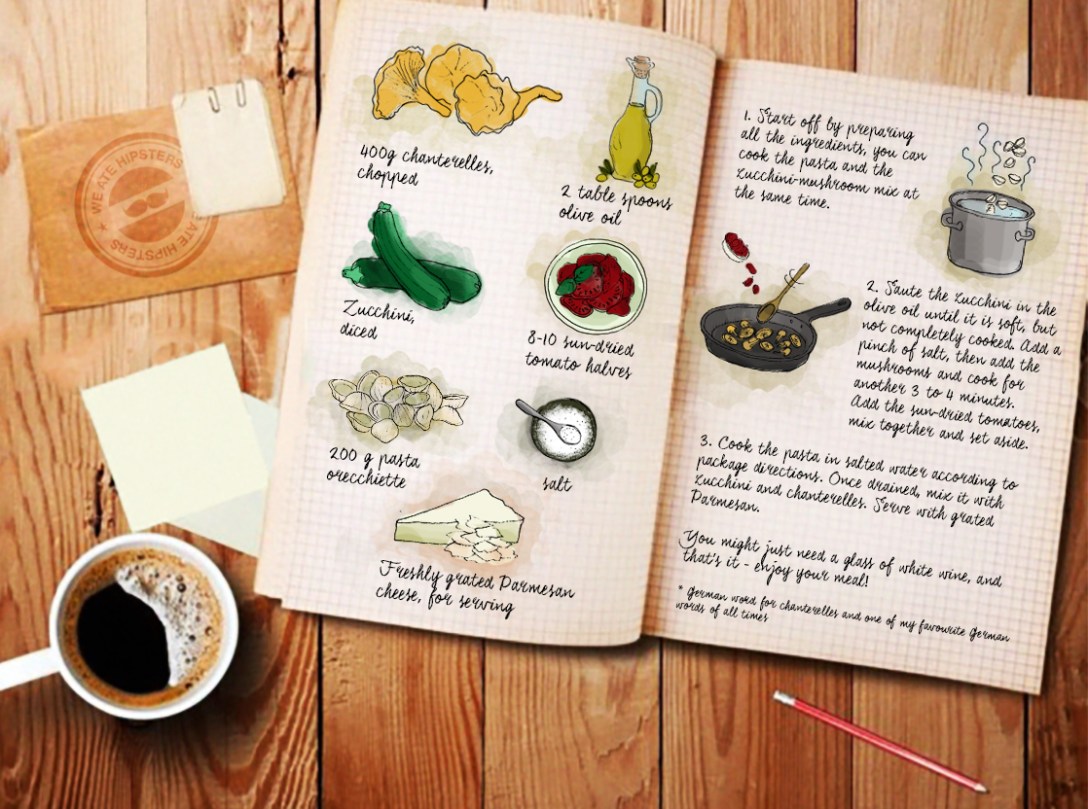 WE ATE HIPSTERS
ATE HIPSTERS
400g chanterelles,
chopped
2 table spoons
olive oil
Zucchini,
diced
8-10 sun-dried
tomato halves
200 g pasta
orecchiette
salt
Freshly grated Parmesan
cheese, for serving
1. Start off by preparing
all the ingredients, you can
cook the pasta and the
Zucchini-mushroom mix at
the same time.
2. Saute the Zucchini in the
olive oil until it is soft, but
not completely cooked. Add a
pinch of salt, then add the
mushrooms and cook for
another 3 to 4 minutes.
Add the sun-dried tomatoes,
mix together and set aside.
3. Cook the pasta in salted water according to
package directions. Once drained, mix it with
Zucchini and chanterelles. Serve with grated
Parmesan.
You might just need a glass of white wine, and
that's it - enjoy your meal!
* German word for chanterelles and one of my favourite German
words of all times